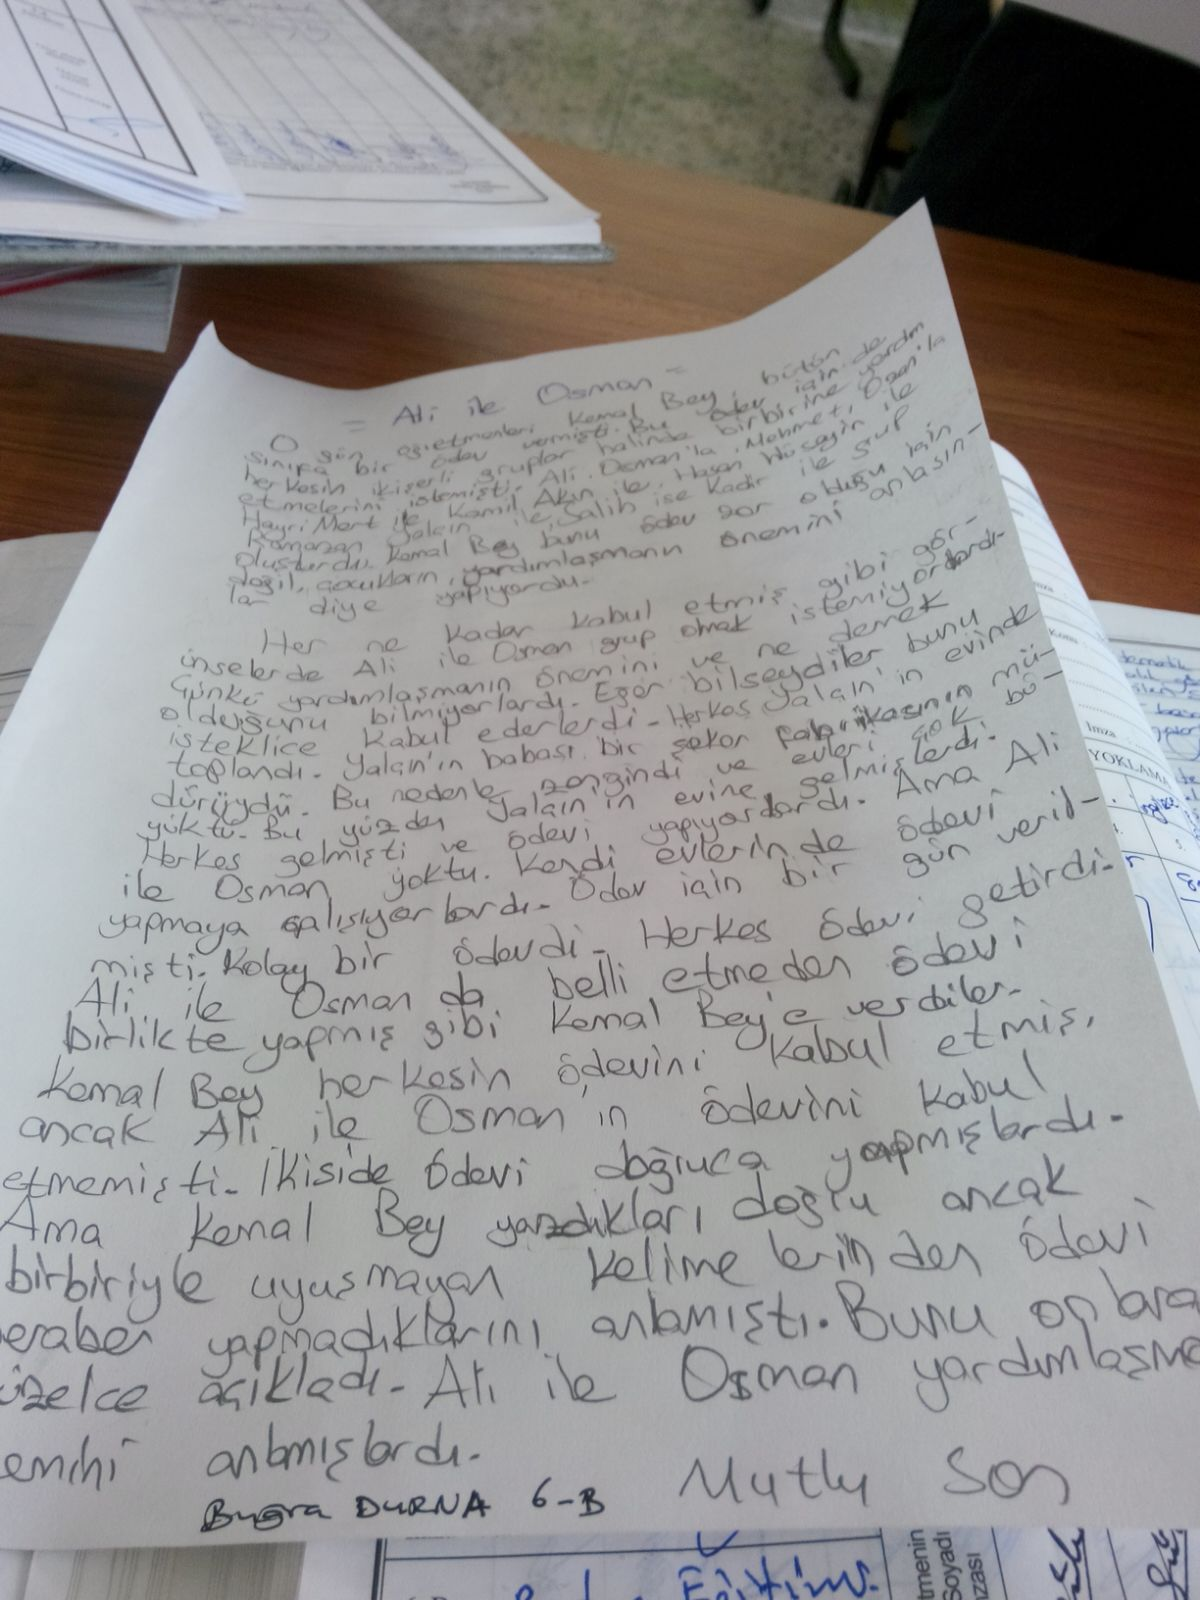 = Ali ile Osman =
O gün öğretmenleri Kemal Bey, bütün
sınıfa bir ödev vermişti. Bu ödev için de
herkesin ikişerli gruplar halinde birbirine yardım
etmelerini istemişti. Ali Osman'la, Mehmet, Ozan'la
Hayri Mert ile Kamil Akın ile, Hasan Hüseyin ile
Ramazan Yalçın ile, Salih ise Kadir ile grup
oluşturdu. Kemal Bey bunu ödev zor olduğu için
değil, çocukların, yardımlaşmanın önemini anlasın-
lar diye yapıyordu.
Her ne kadar kabul etmiş gibi gör-
ünselerde Ali ile Osman grup olmak istemiyorlardı.
Çünkü yardımlaşmanın önemini ve ne demek
olduğunu bilmiyorlardı. Eğer bilseydiler bunu
isteklice kabul ederlerdi. Herkes Yalçın'ın evinde
toplandı. Yalçın'ın babası bir şeker fabrikasının mü-
dürüydü. Bu nedenle zengindi ve evleri çok bü-
yüktü. Bu yüzden Yalçın'ın evine gelmişlerdi.
Herkes gelmişti ve ödevi yapıyorlardı. Ama Ali
ile Osman yoktu. Kendi evlerinde ödevi
yapmaya çalışıyorlardı. Ödev için bir gün veril-
mişti. Kolay bir ödevdi. Herkes ödevi getirdi.
Ali ile Osman da belli etmeden ödevi
birlikte yapmış gibi Kemal Bey'e verdiler.
Kemal Bey herkesin ödevini kabul etmiş,
ancak Ali ile Osman'ın ödevini kabul
etmemişti. İkiside ödevi doğruca yapmışlardı.
Ama Kemal Bey yazdıkları doğru ancak
birbiriyle uyuşmayan kelimelerinden ödevi
eraber yapmadıklarını anlamıştı. Bunu onlara
üzelce açıkladı. Ali ile Osman yardımlaşma
emini anlamışlardı.
Mutlu Son
Buğra DURNA 6-B
YOKLAMA
İmza
Eğitimi
tmenin
Soyadı
zası